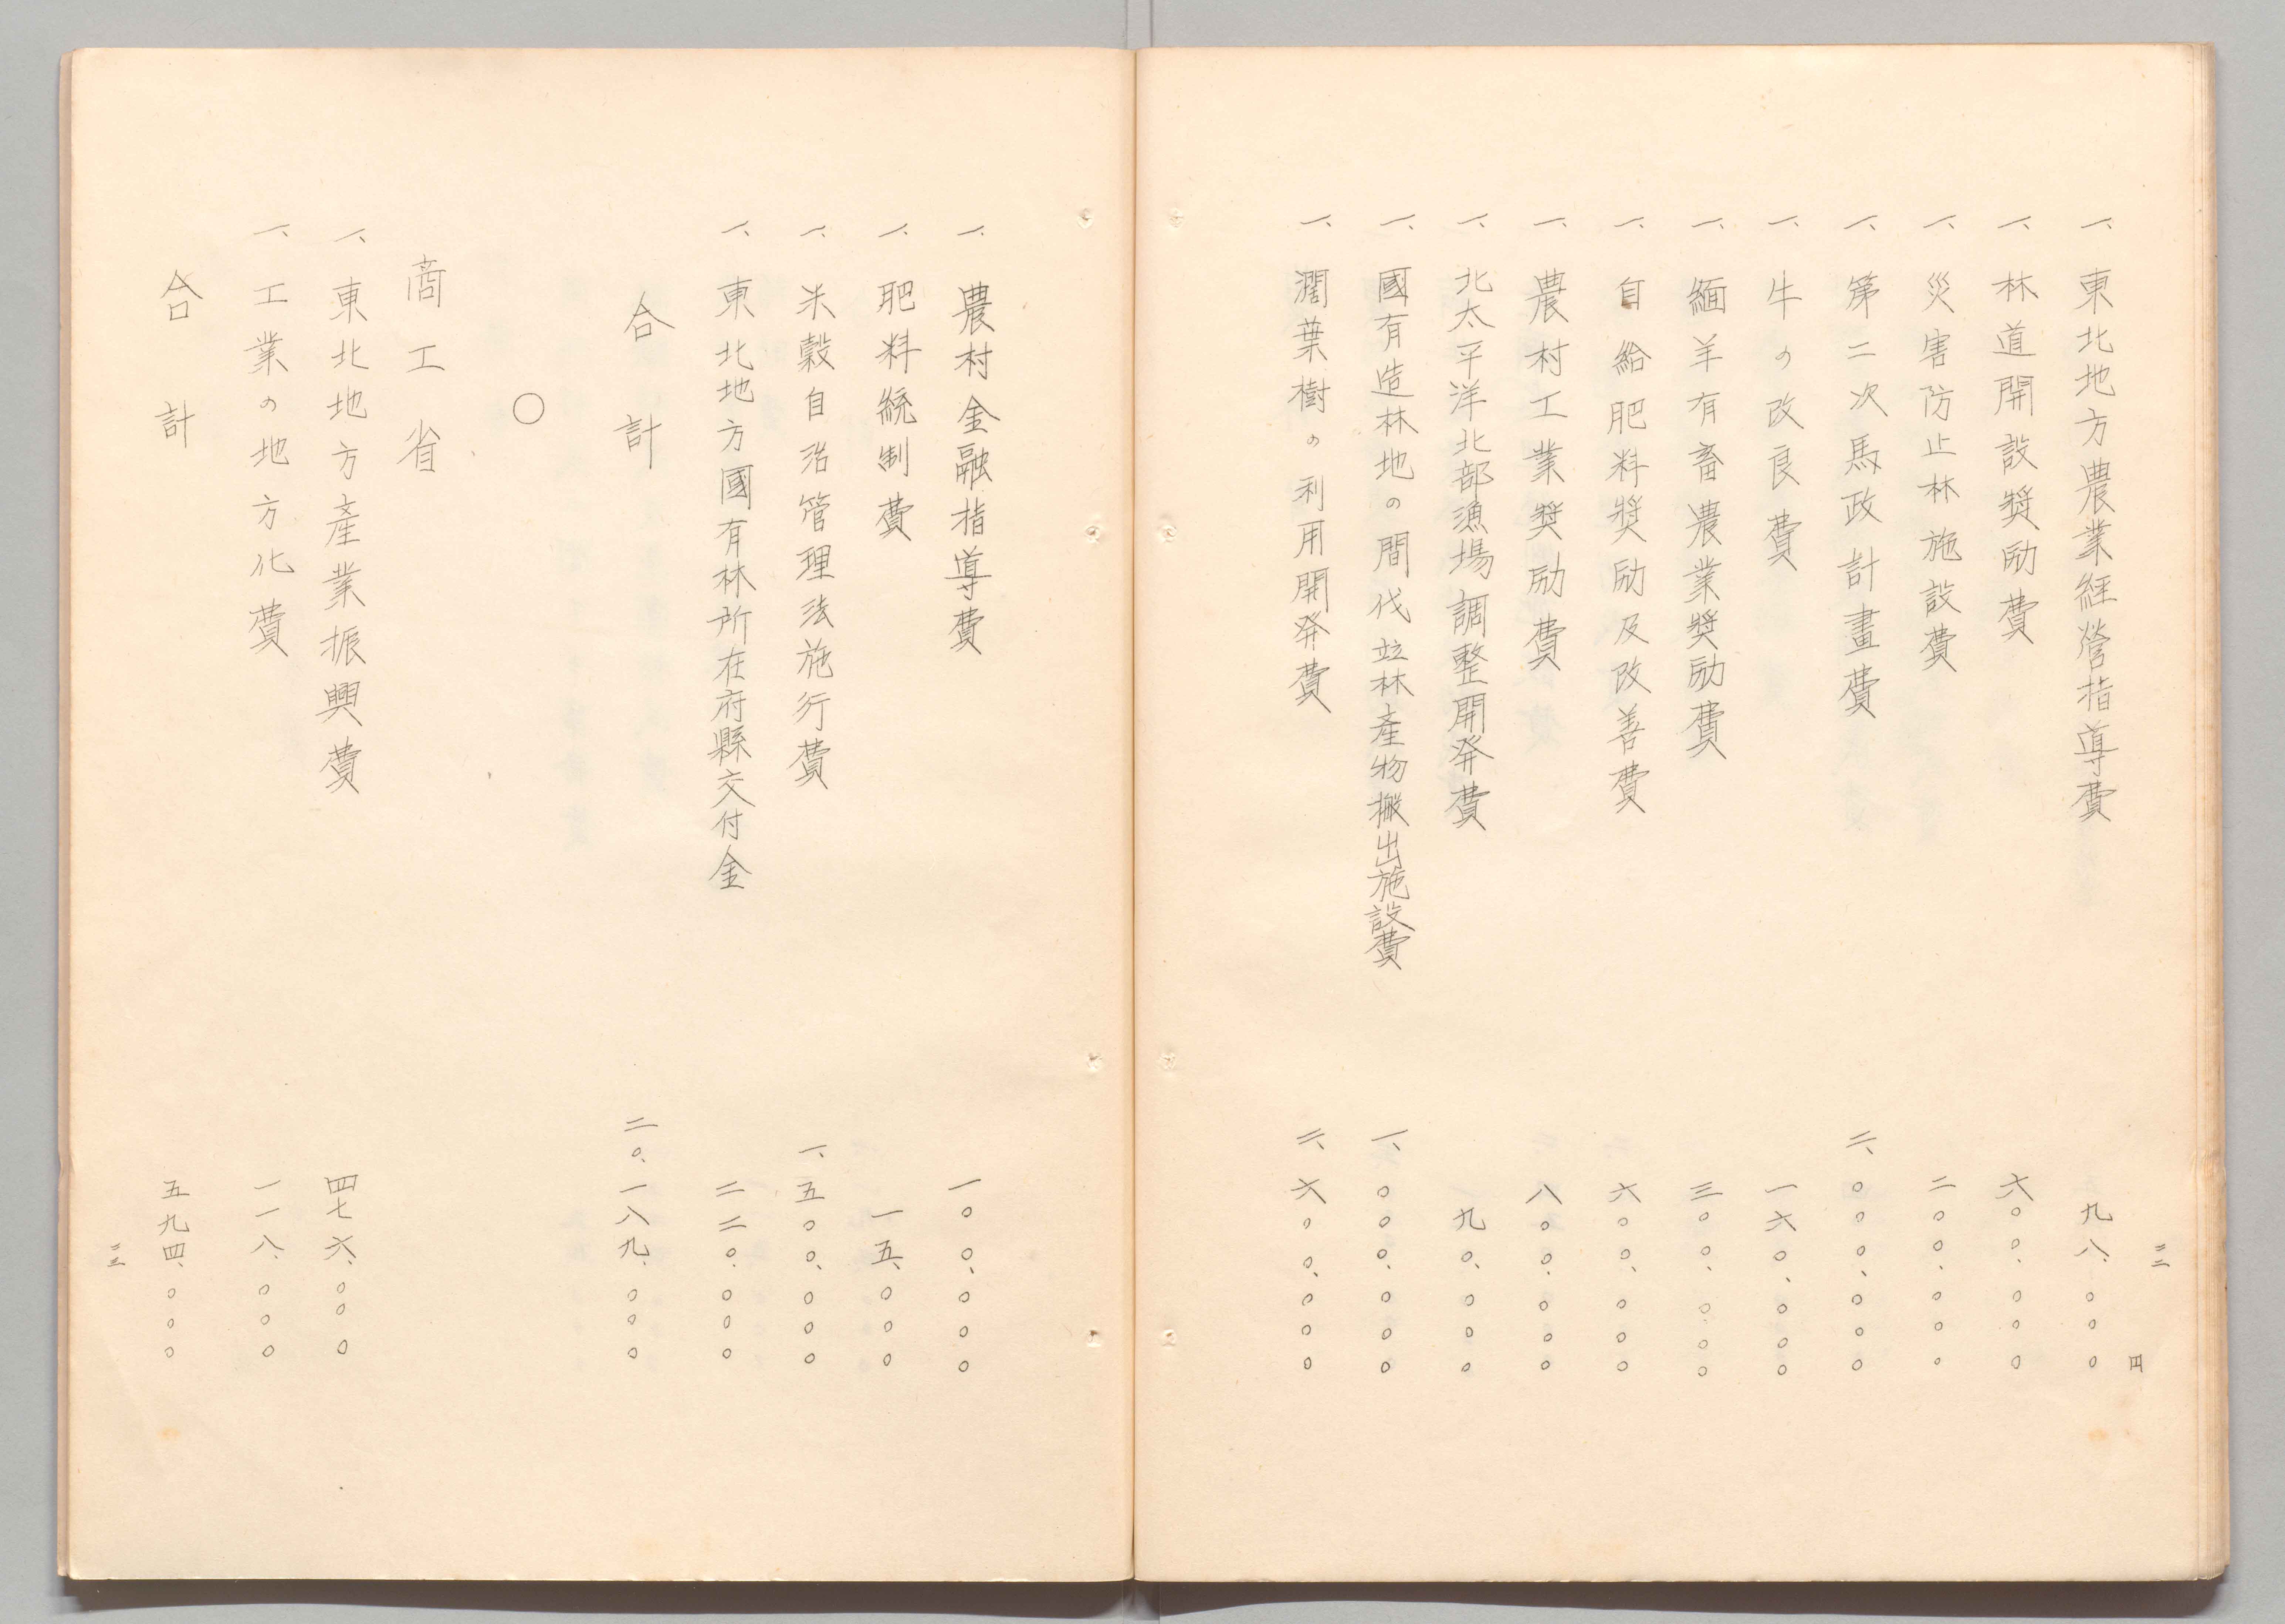 三二
円
一、東北地方農業経營指導費 九八、〇〇〇
一、林道開設奬励費 六〇〇、〇〇〇
一、災害防止林施設費 二〇〇、〇〇〇
一、第二次馬政計畫費 二、〇〇〇、〇〇〇
一、牛の改良費 一六〇、〇〇〇
一、緬羊有畜農業奬励費 三〇〇、〇〇〇
一、自給肥料奬励及改善費 六〇〇、〇〇〇
一、農村工業奬励費 八〇〇、〇〇〇
一、北太平洋北部漁場調整開発費 九〇、〇〇〇
一、國有造林地の間伐竝林產物搬出施設費 一、〇〇〇、〇〇〇
一、濶葉樹の利用開発費 二、六〇〇、〇〇〇
一、農村金融指導費 一〇〇、〇〇〇
一、肥料統制費 一五、〇〇〇
一、米穀自治管理法施行費 一、五〇〇、〇〇〇
一、東北地方國有林所在府縣交付金 二二〇、〇〇〇
合計 二〇、一八九、〇〇〇
〇
商工省
一、東北地方產業振興費 四七六、〇〇〇
一、工業の地方化費 一一八、〇〇〇
合計 五九四、〇〇〇
三三